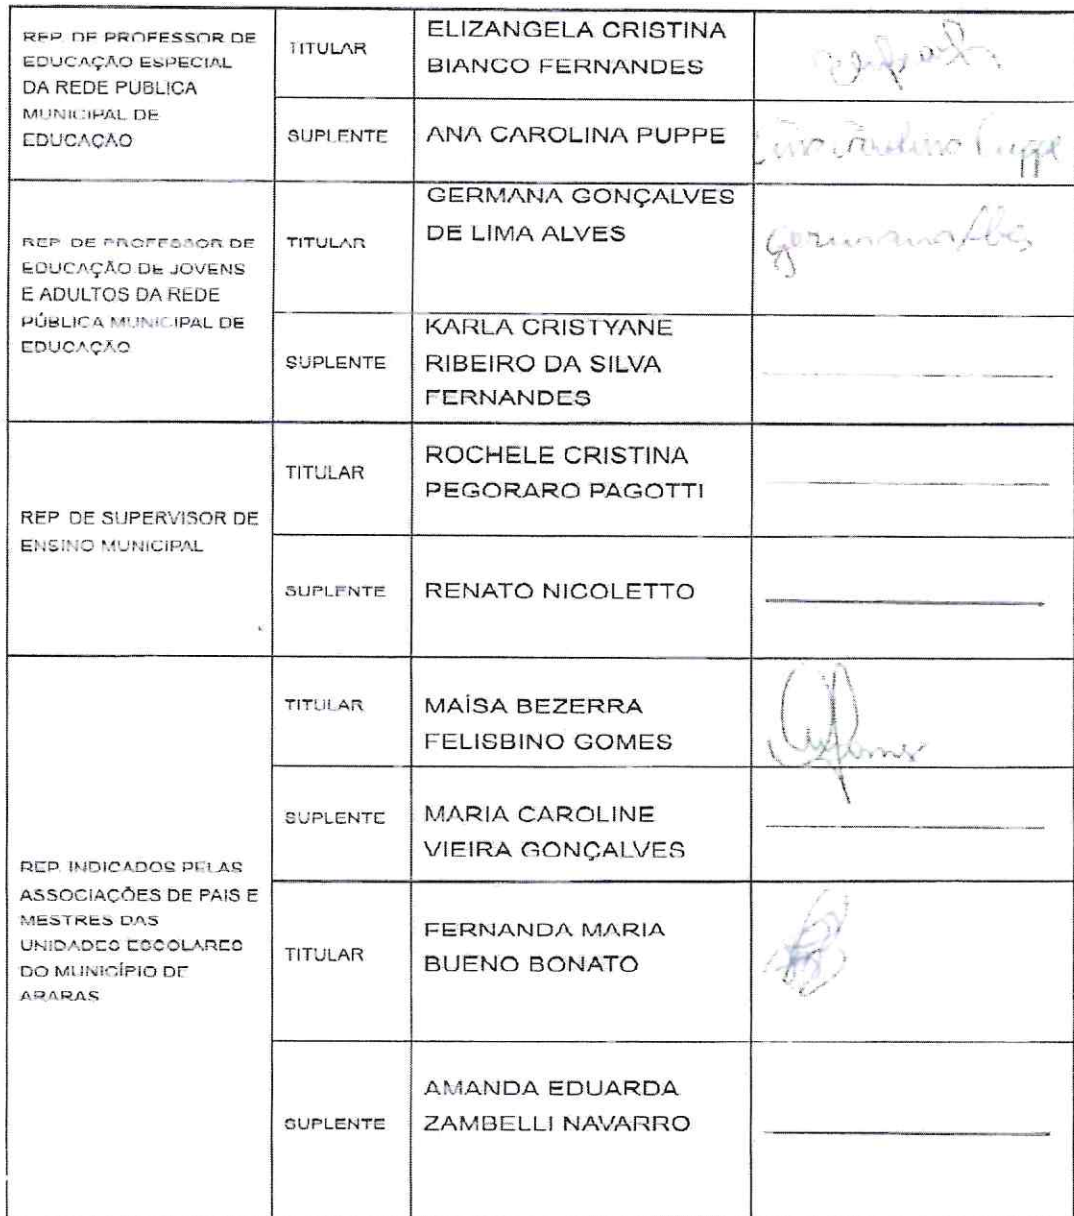 REP. DE PROFESSOR DE
EDUCAÇÃO ESPECIAL
DA REDE PÚBLICA
MUNICIPAL DE
EDUCAÇÃO
TITULAR
ELIZANGELA CRISTINA
BIANCO FERNANDES
SUPLENTE
ANA CAROLINA PUPPE
Ana Carolina Puppe
REP. DE PROFESSOR DE
EDUCAÇÃO DE JOVENS
E ADULTOS DA REDE
PÚBLICA MUNICIPAL DE
EDUCAÇÃO
TITULAR
GERMANA GONÇALVES
DE LIMA ALVES
Germana Alves
SUPLENTE
KARLA CRISTYANE
RIBEIRO DA SILVA
FERNANDES
REP. DE SUPERVISOR DE
ENSINO MUNICIPAL
TITULAR
ROCHELE CRISTINA
PEGORARO PAGOTTI
SUPLENTE
RENATO NICOLETTO
REP. INDICADOS PELAS
ASSOCIAÇÕES DE PAIS E
MESTRES DAS
UNIDADES ESCOLARES
DO MUNICÍPIO DE
ARARAS
TITULAR
MAÍSA BEZERRA
FELISBINO GOMES
SUPLENTE
MARIA CAROLINE
VIEIRA GONÇALVES
TITULAR
FERNANDA MARIA
BUENO BONATO
SUPLENTE
AMANDA EDUARDA
ZAMBELLI NAVARRO